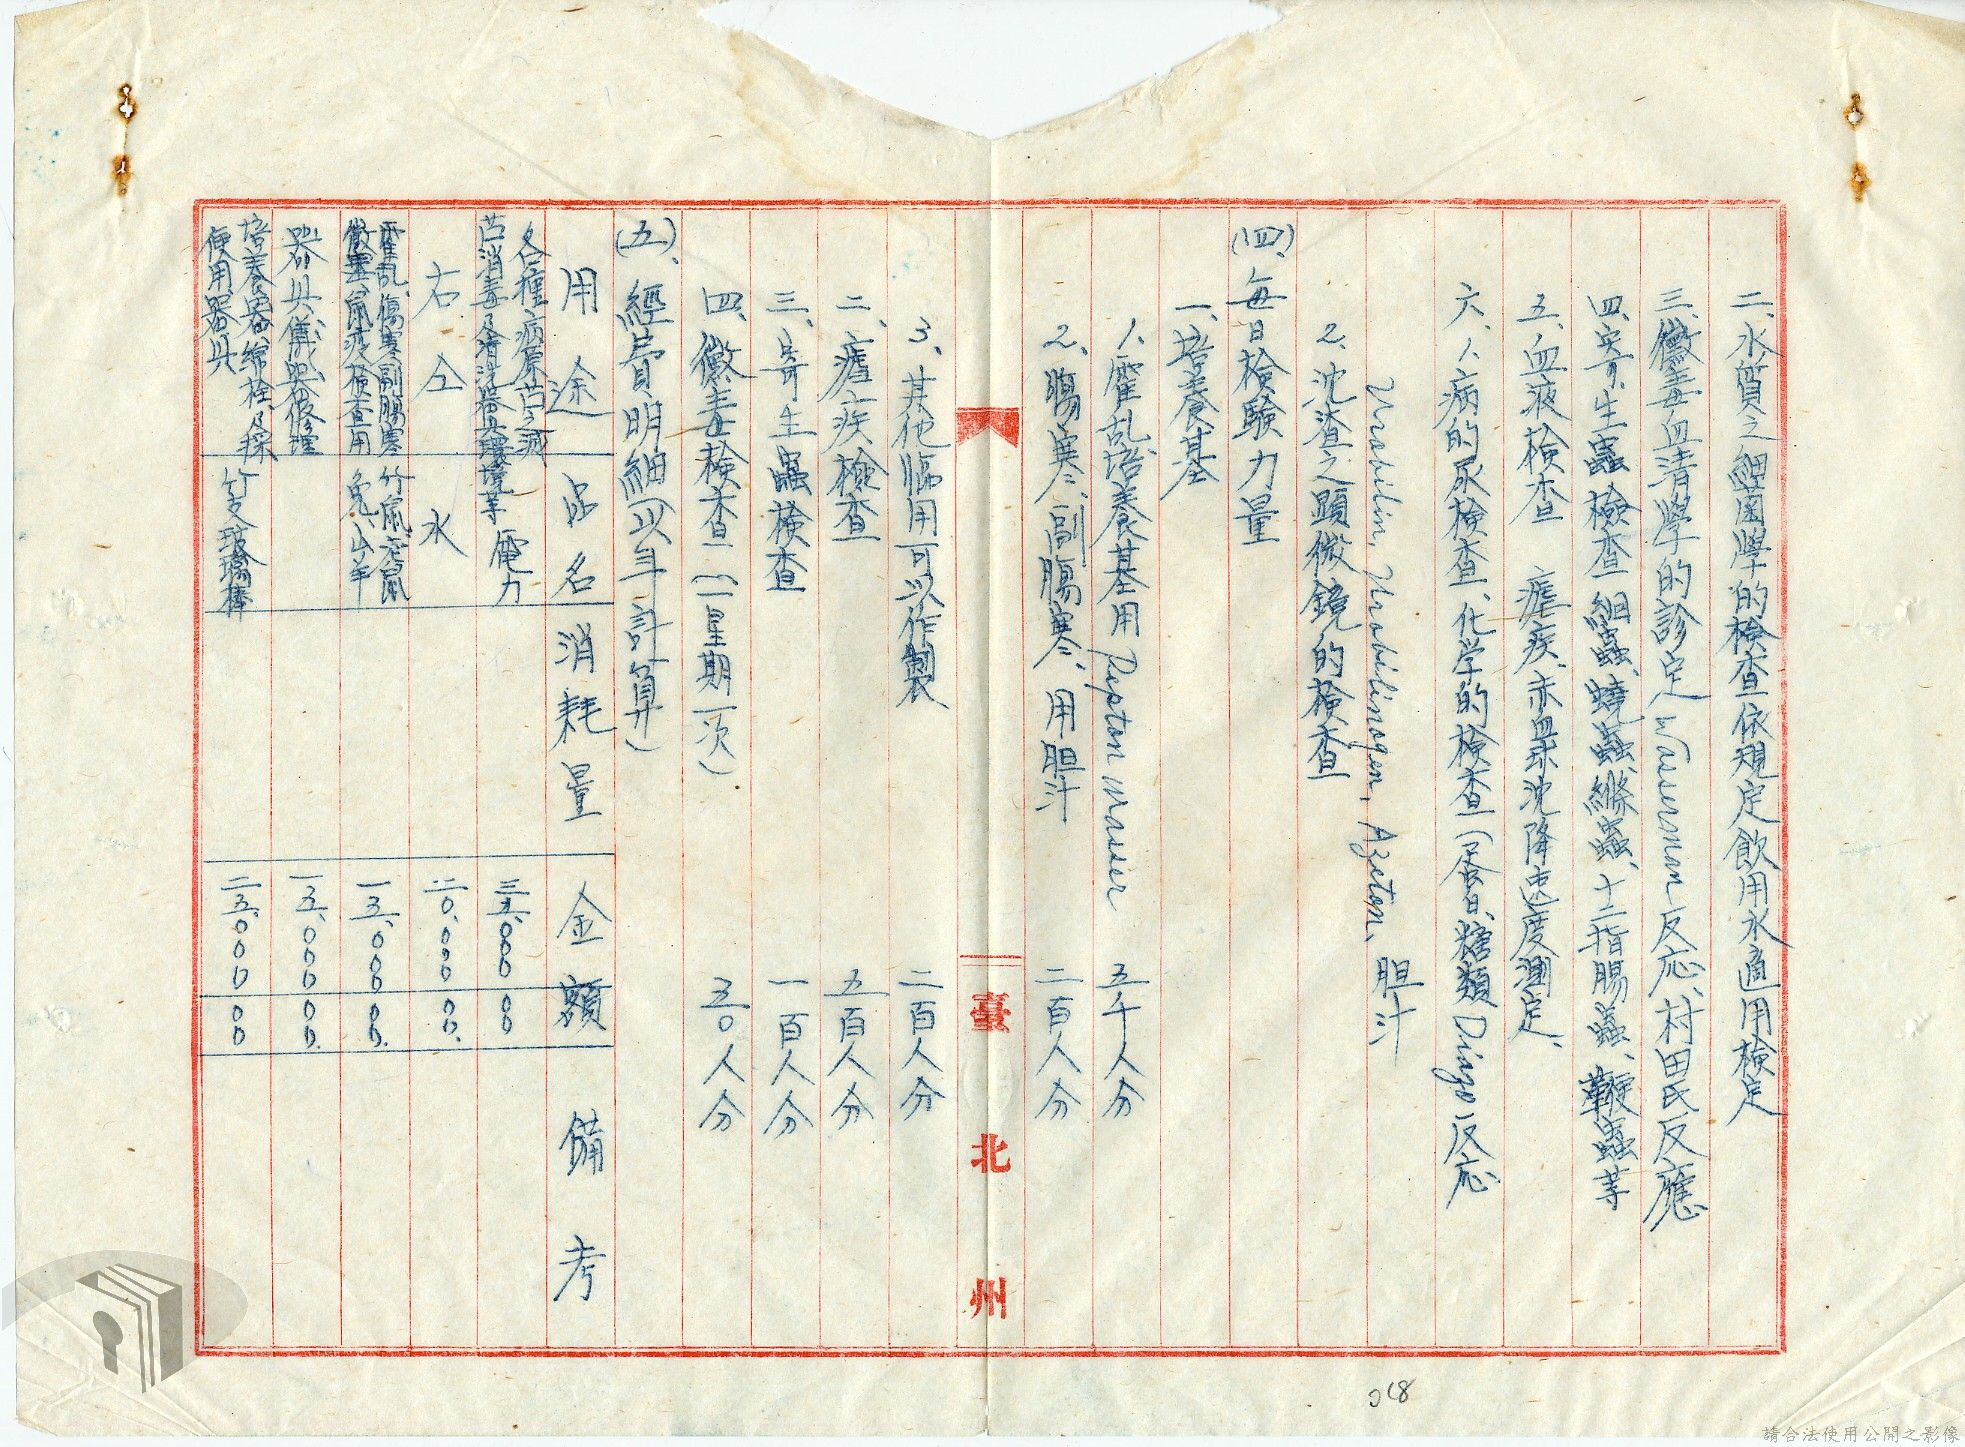 二、水質之細菌學的檢查依規定飲用水適用檢定
三、黴毒血清學的診定 Wasserman反応、村田氏反應
四、寄生蟲檢查 蛔蟲、蟯蟲、絛蟲、十二指腸蟲、鞭蟲等
五、血液檢查 瘧疾、赤血球沈降速度測定、
六、1、病的尿檢查、化学的檢查(蛋白、糖類 Diazo反応
Urobilin, Urobilinogen, Azeton, 胆汁
2、沈渣之顕微鏡的檢查
(四)、每日檢驗力量
一、培养基
1、霍乱培養基用 Pepton wasser 五千人分
2、腸寒、副腸寒、用胆汁 二百人分
3、其他臨用可以作製 二百人分
二、瘧疾檢查 五百人分
三、寄生蟲檢查 一百人分
四、黴毒檢查(一星期一次) 五〇人分
(五)、經費明細(以年計算)
用途 品名 消耗量 金額 備考
各種病原苗之滅
苗消毒及清淨器具環境等 電力 三五、000 00
右仝 水 二0、000 00.
霍乱、傷寒、副腸寒 竹鼠、天竺鼠
黴毒、鼠疫檢查用 兔、山羊 一五、000 00.
器具儀器修理 一五、000 00.
培養器、綿栓及採
便用器具 竹支玻璃棒 二五、000 00
臺北州
018
請合法使用公開之影像